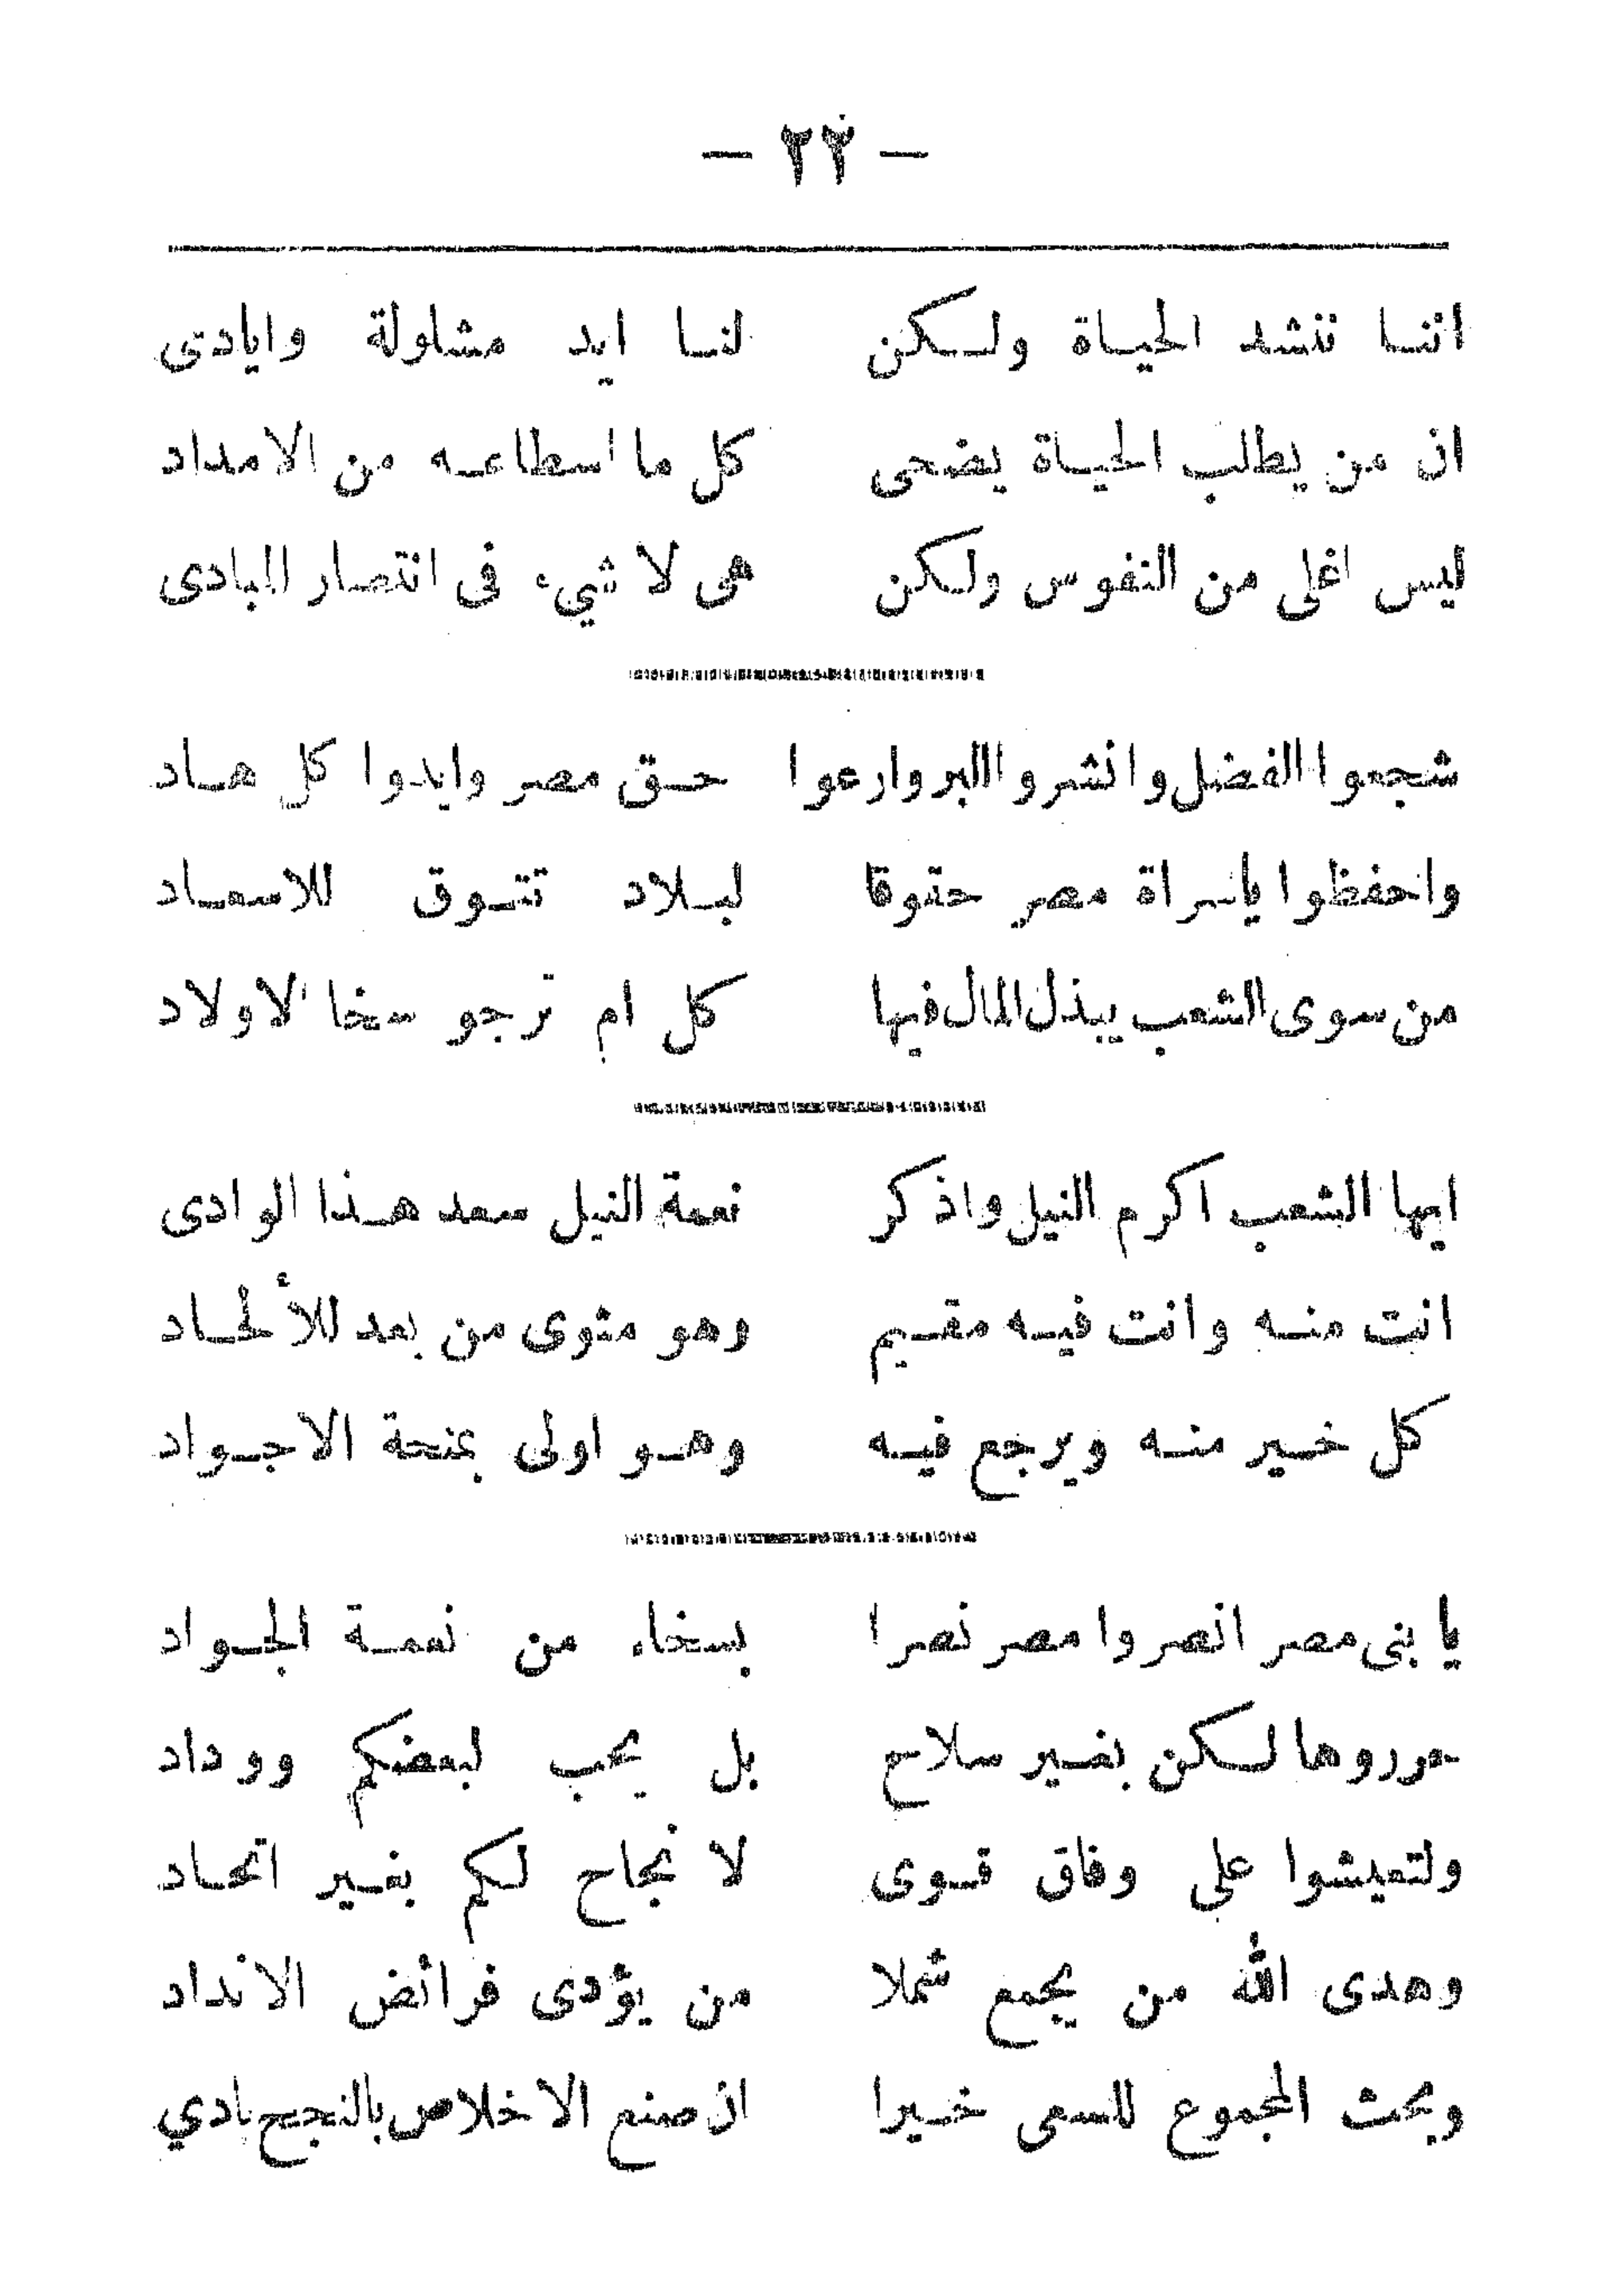 — ٢٢ —
اننا ننشد الحياة ولكن لنا ايد مشلولة وايادى
ان من يطلب الحياة يضحى كل ما اسطاعه من الامداد
ليس اغلى من النفوس ولكن هى لا شيء فى انتصار المبادى
شجعوا الفضل وانشروا البر وارعوا حق مصر وايدوا كل هاد
واحفظوا ياسراة مصر حقوقا لبلاد تتوق للاسعاد
من سوى الشعب يبذل المال فيها كل ام ترجو سخا الاولاد
ايها الشعب اكرم النيل واذكر نعمة النيل سعد هذا الوادى
انت منه وانت فيه مقيم وهو مثوى من بعد للألحاد
كل خير منه ويرجع فيه وهو اولى بمنحة الاجواد
يا بنى مصر انصروا مصر نصرا بسخاء من نعمة الجواد
حرروها لكن بغير سلاح بل بحب لبعضكم ووداد
ولتعيشوا على وفاق قوى لا نجاح لكم بغير اتحاد
وهدى الله من يجمع شملا من يؤدى فرائض الانداد
ويحث المجموع للسعى خيرا ان صنع الاخلاص بالنجح بادي